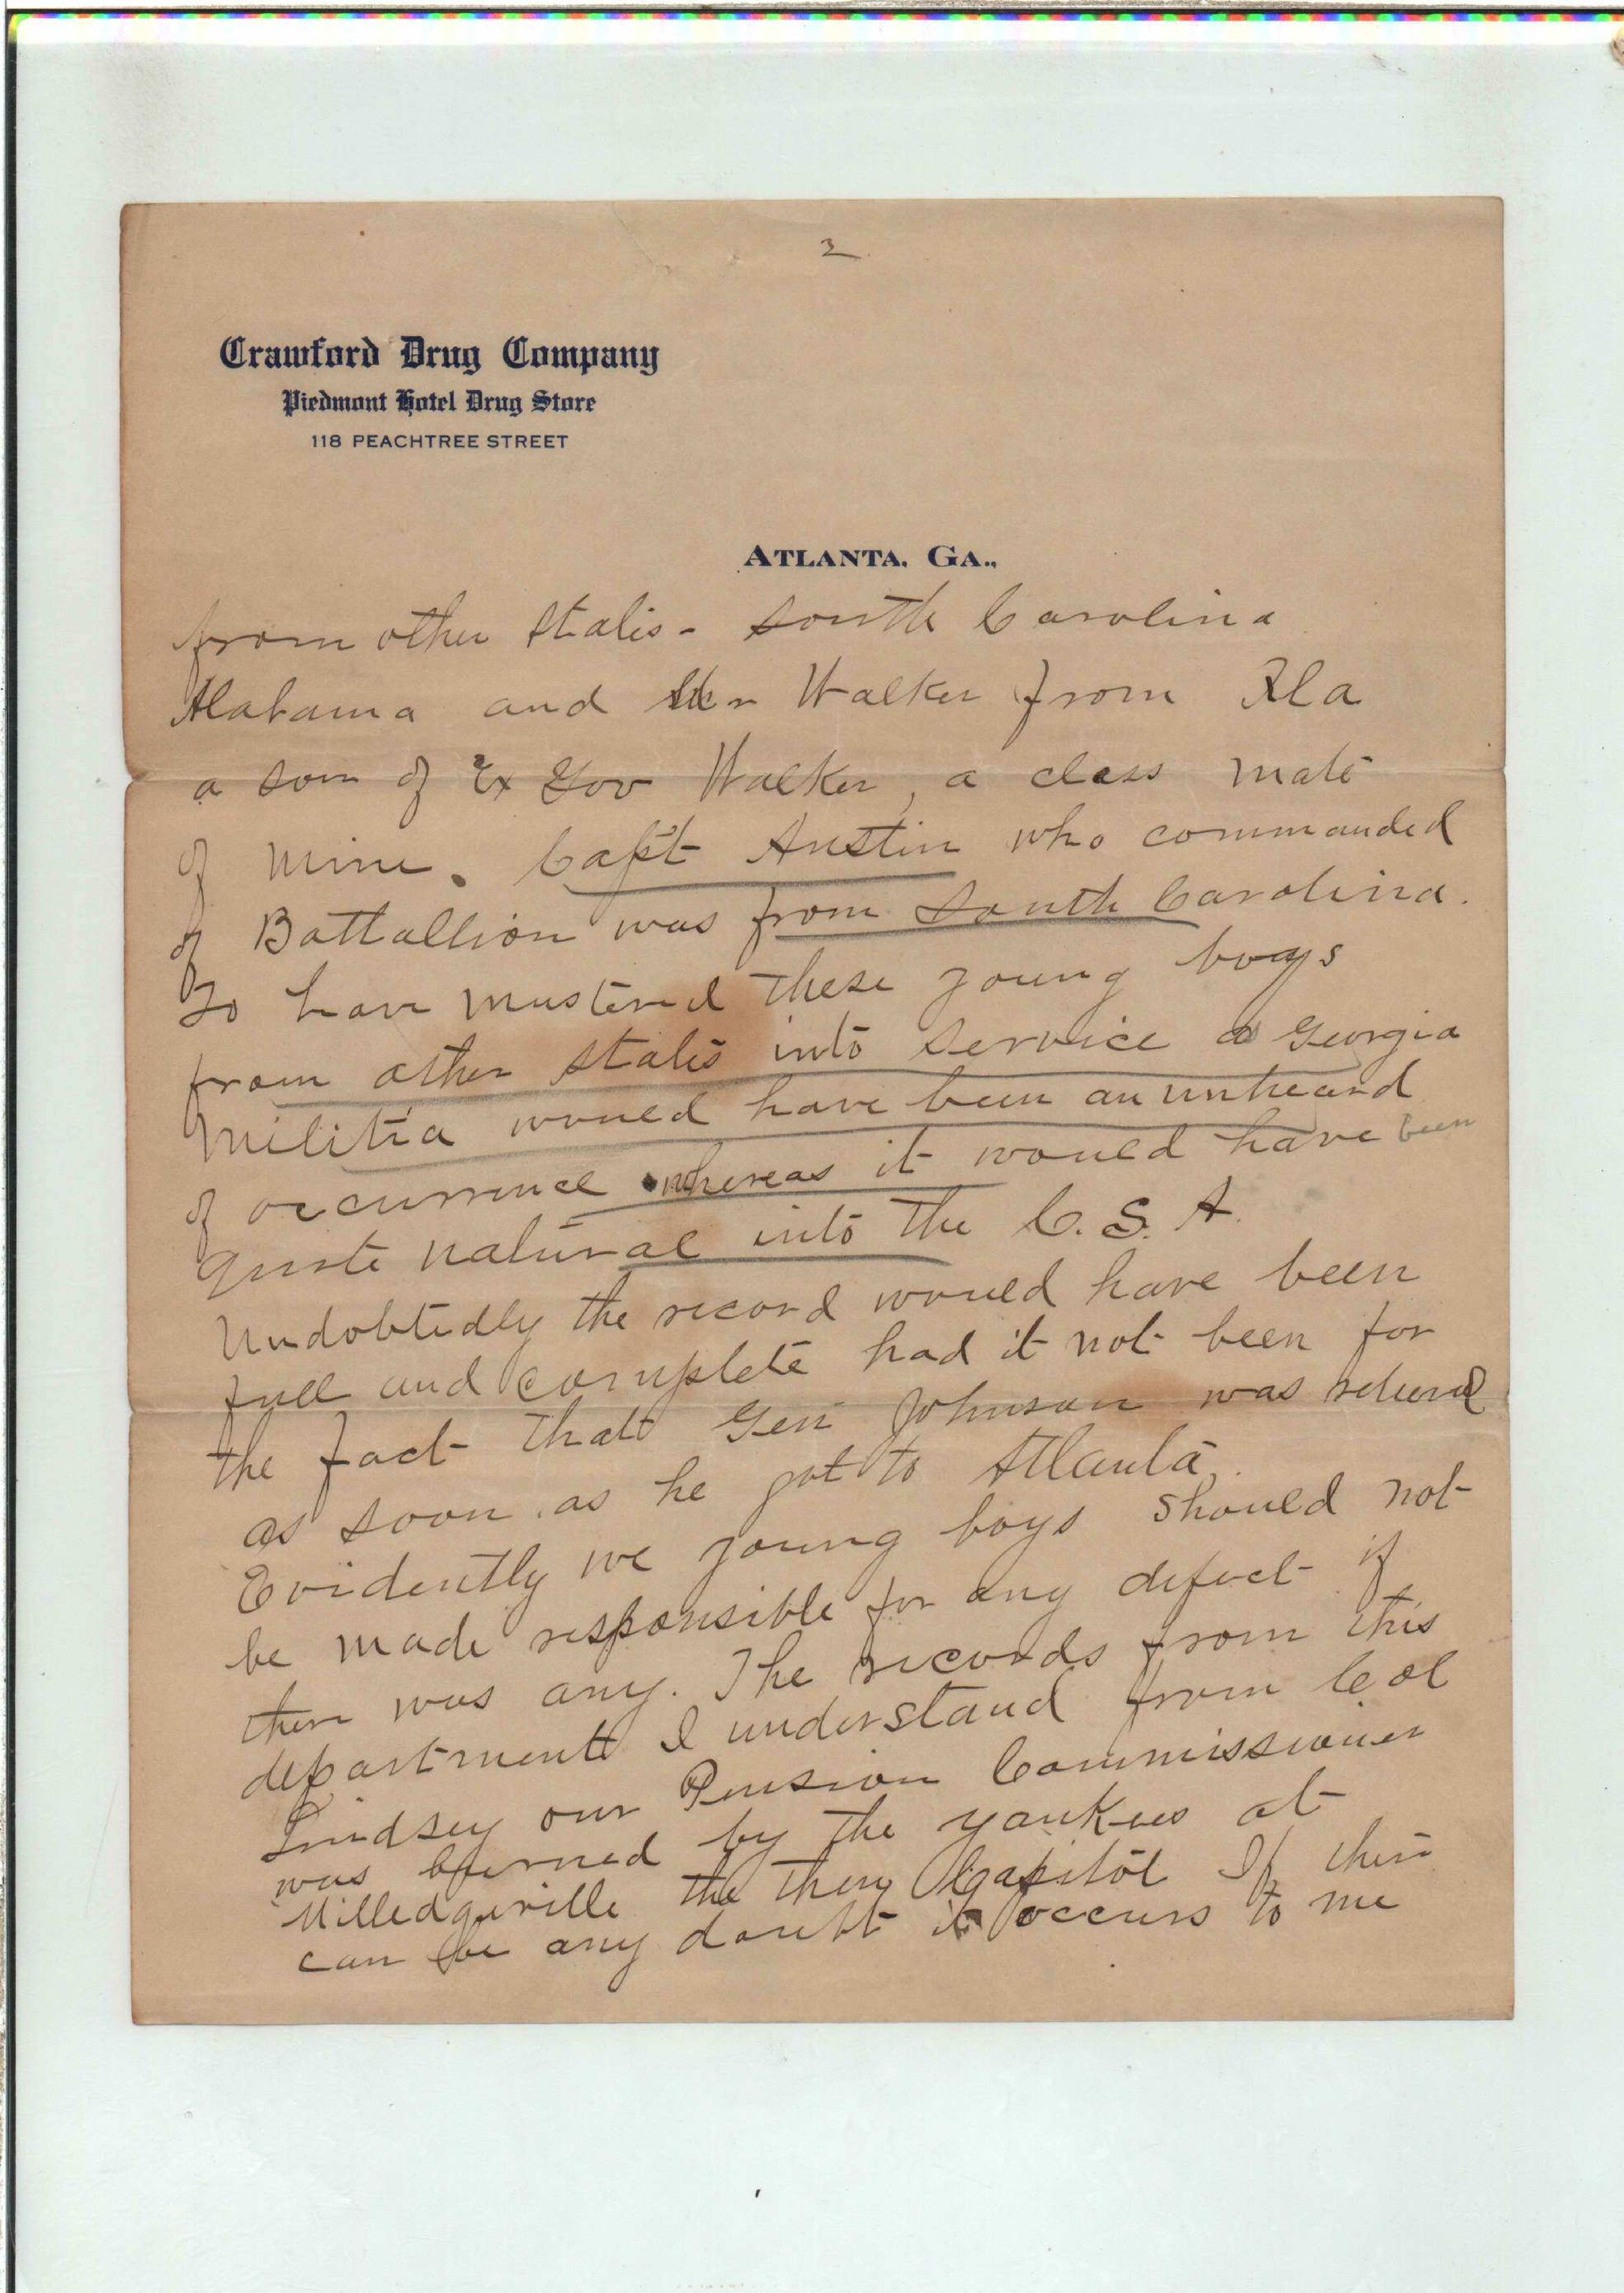 2
Crawford Drug Company
Piedmont Hotel Drug Store
118 PEACHTREE STREET
ATLANTA, GA.,
from other States - South Carolina
Alabama and Walker from Fla
a son of Ex Gov Walker, a class mate
of mine. Capt Austin who commanded
of Battallion was from South Carolina.
To have mustered these young boys
from other states into service a Georgia
Militia would have been an unheard
of occurrence whereas it would have been
quite natural into the C.S.A.
Undobtedly the record would have been
full and complete had it not been for
the fact that Gen Johnson was relieved
as soon as he got to Atlanta.
Evidently we young boys should not
be made responsible for any defect if
there was any. The records from this
department I understand from Col
Lindsey our Pension Commissioner
was burned by the yankees at
Milledgeville the then Capitol If there
can be any doubt it occurs to me